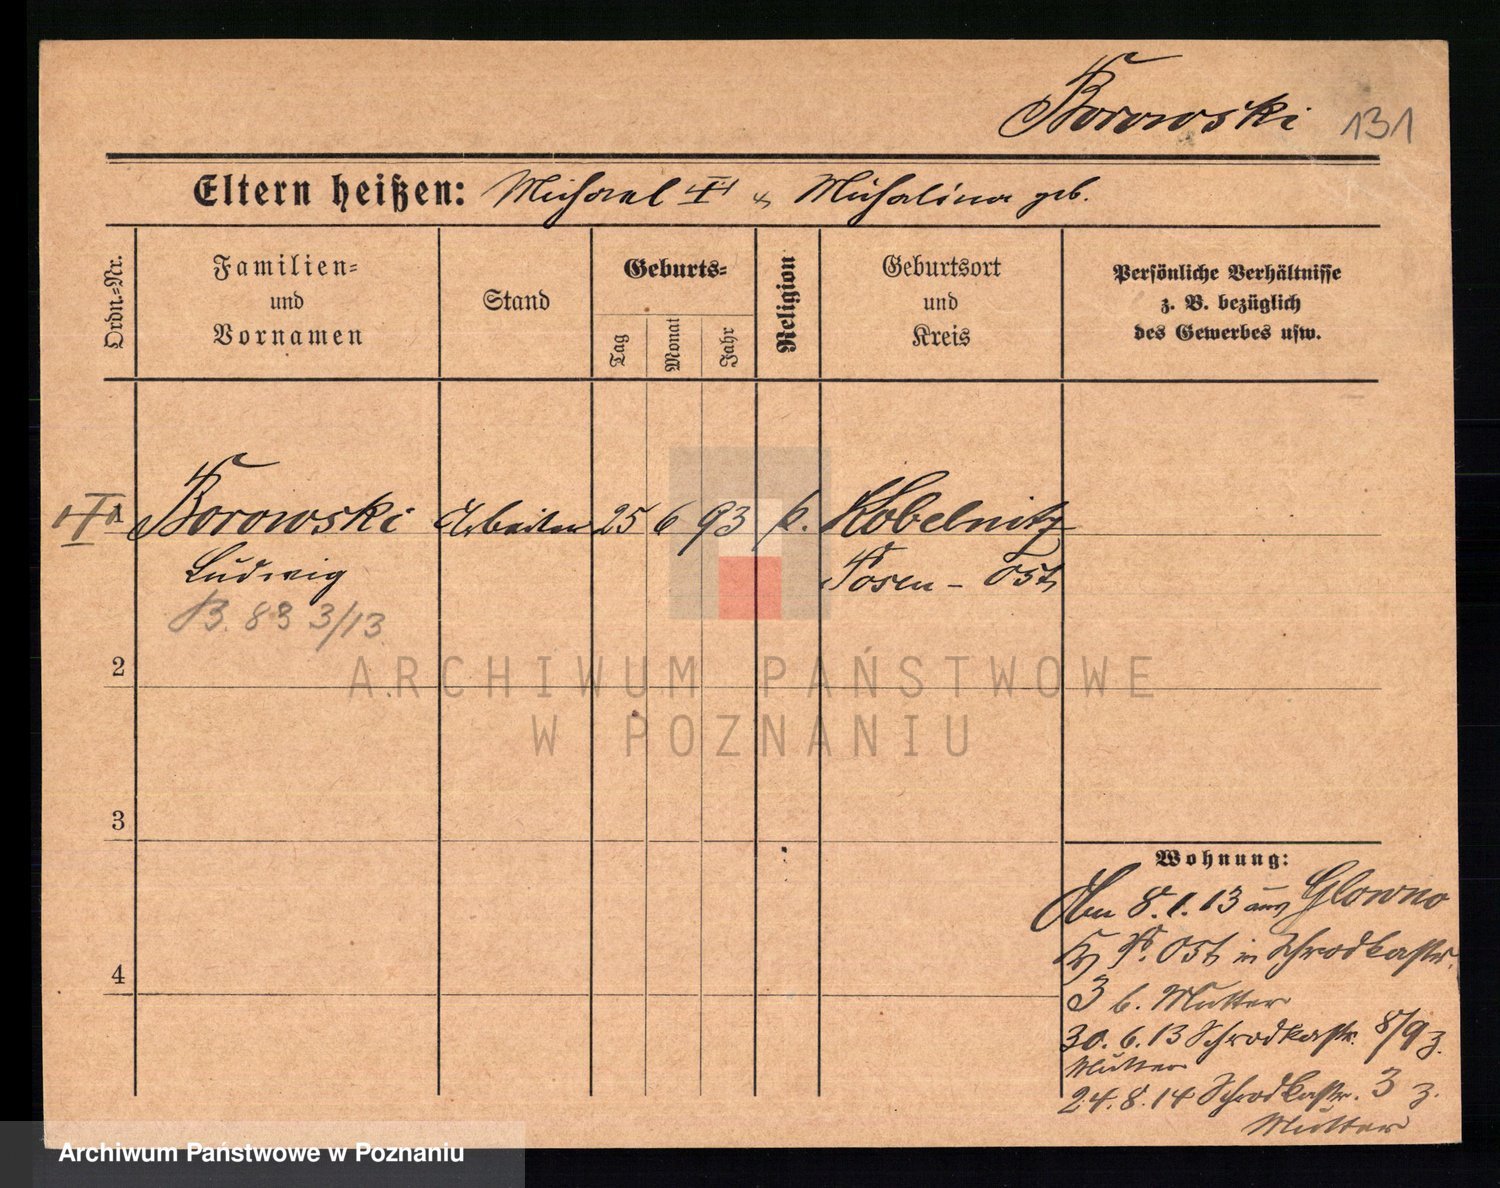 Borowski 131
Eltern heißen: Michael & Michalina geb.
Ordn.-Nr.
Familien-
und
Vornamen
Stand
Geburts-
Tag
Monat
Jahr
Religion
Geburtsort
und
Kreis
Persönliche Verhältnisse
z. B. bezüglich
des Gewerbes usw.
1 Borowski Arbeiter 25 6 93 k. Kobelnitz
Ludwig Posen - Ost
B. 83 3/13
2
ARCHIWUM PAŃSTWOWE
W POZNANIU
3
Wohnung:
Am 8.1.13 aus Glowno
Kr. P. Ost in Schrodkastr.
3 b. Mutter
4
30. 6. 13 Schrodkastr. 8/9 z.
Mutter
24. 8. 14 Schrodkastr. 3 z.
Mutter
Archiwum Państwowe w Poznaniu